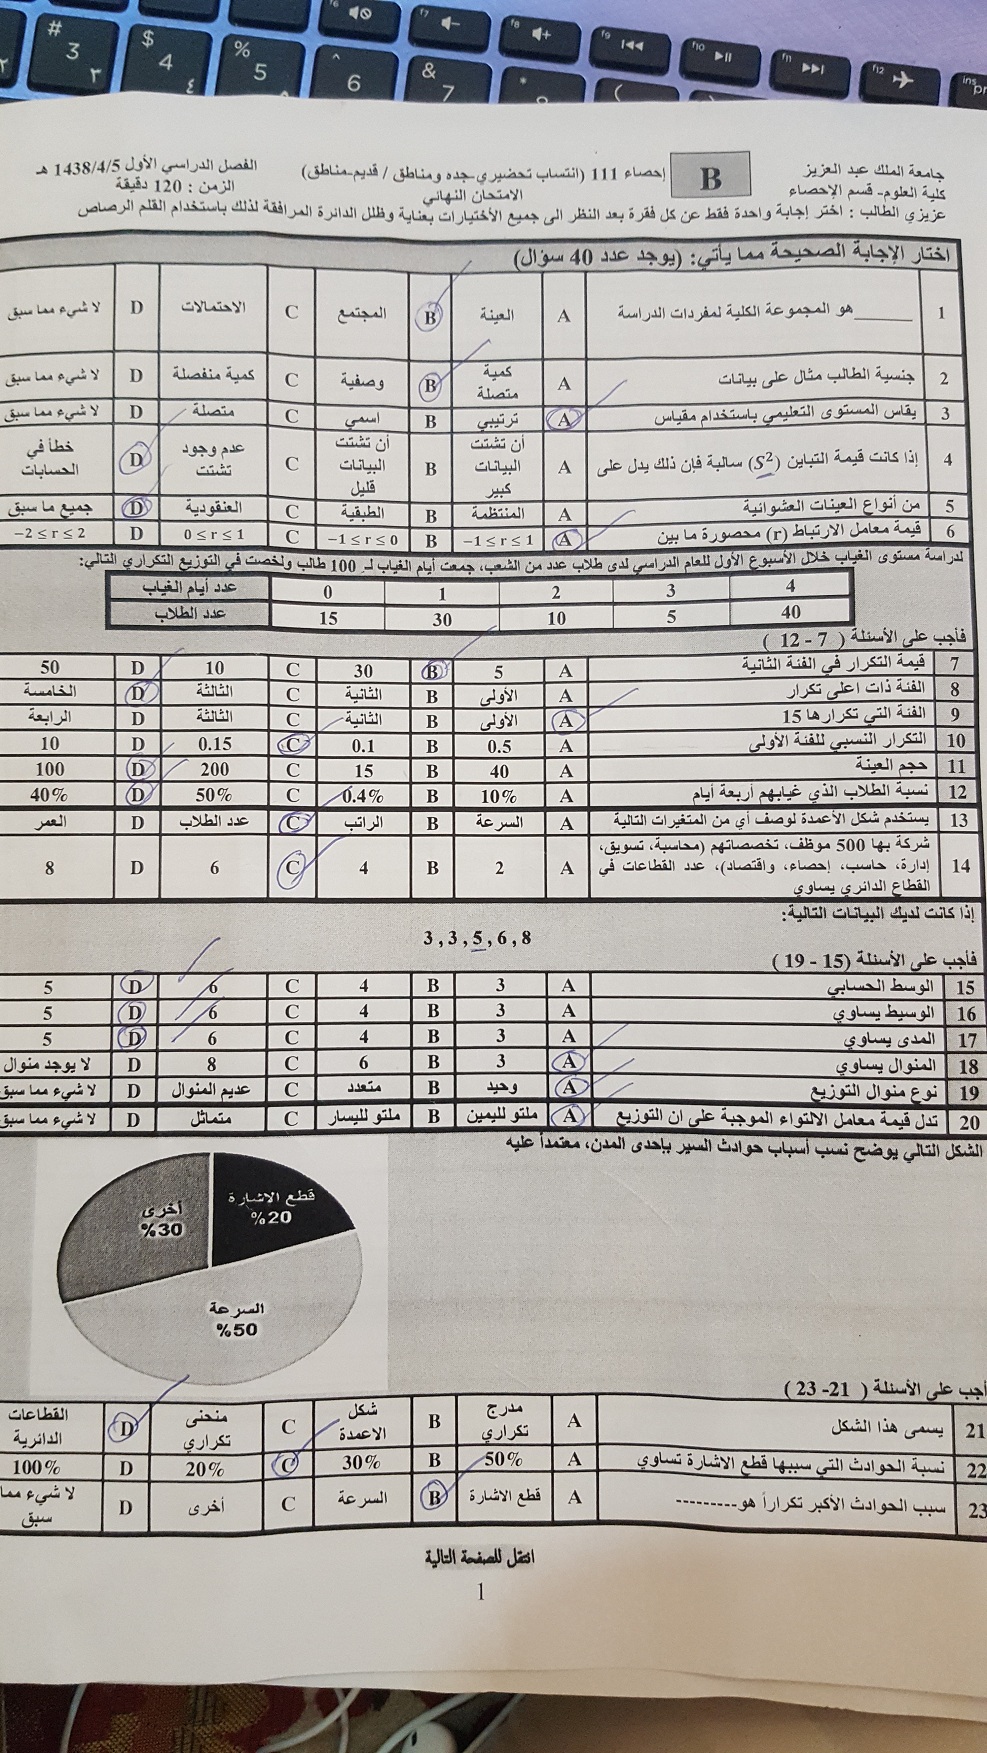 # 3 ٣
$ 4 ٤
% 5
^ 6
& 7
*
(
f6
f7
f8
f9
f10
f11
f12
ins
جامعة الملك عبد العزيز
كلية العلوم- قسم الإحصاء
B
إحصاء 111 (انتساب تحضيري-جده ومناطق / قديم-مناطق)
الامتحان النهائي
الفصل الدراسي الأول 1438/4/5 هـ
الزمن : 120 دقيقة
عزيزي الطالب : اختر إجابة واحدة فقط عن كل فقرة بعد النظر الى جميع الأختيارات بعناية وظلل الدائرة المرافقة لذلك باستخدام القلم الرصاص
اختار الإجابة الصحيحة مما يأتي: (يوجد عدد 40 سؤال)
1 ______هو المجموعة الكلية لمفردات الدراسة A العينة B المجتمع C الاحتمالات D لا شيء مما سبق
2 جنسية الطالب مثال على بيانات A كمية متصلة B وصفية C كمية منفصلة D لا شيء مما سبق
3 يقاس المستوى التعليمي باستخدام مقياس A ترتيبي B اسمي C متصلة D لا شيء مما سبق
4 إذا كانت قيمة التباين (S²) سالبة فإن ذلك يدل على A أن تشتت البيانات كبير B أن تشتت البيانات قليل C عدم وجود تشتت D خطأ في الحسابات
5 من أنواع العينات العشوائية A المنتظمة B الطبقية C العنقودية D جميع ما سبق
6 قيمة معامل الارتباط (r) محصورة ما بين A −1 ≤ r ≤ 1 B −1 ≤ r ≤ 0 C 0 ≤ r ≤ 1 D −2 ≤ r ≤ 2
لدراسة مستوى الغياب خلال الأسبوع الأول للعام الدراسي لدى طلاب عدد من الشعب، جمعت أيام الغياب لـ 100 طالب ولخصت في التوزيع التكراري التالي:
عدد أيام الغياب 0 1 2 3 4
عدد الطلاب 15 30 10 5 40
فأجب على الأسئلة ( 7 - 12 )
7 قيمة التكرار في الفئة الثانية A 5 B 30 C 10 D 50
8 الفئة ذات اعلى تكرار A الأولى B الثانية C الثالثة D الخامسة
9 الفئة التي تكرارها 15 A الأولى B الثانية C الثالثة D الرابعة
10 التكرار النسبي للفئة الأولى A 0.5 B 0.1 C 0.15 D 10
11 حجم العينة A 40 B 15 C 200 D 100
12 نسبة الطلاب الذي غيابهم أربعة أيام A 10% B 0.4% C 50% D 40%
13 يستخدم شكل الأعمدة لوصف أي من المتغيرات التالية A السرعة B الراتب C عدد الطلاب D العمر
14 شركة بها 500 موظف، تخصصاتهم (محاسبة، تسويق، إدارة، حاسب، إحصاء، واقتصاد)، عدد القطاعات في القطاع الدائري يساوي A 2 B 4 C 6 D 8
إذا كانت لديك البيانات التالية:
3 , 3 , 5 , 6 , 8
فأجب على الأسئلة (15 - 19 )
15 الوسط الحسابي A 3 B 4 C 6 D 5
16 الوسيط يساوي A 3 B 4 C 6 D 5
17 المدى يساوي A 3 B 4 C 6 D 5
18 المنوال يساوي A 3 B 6 C 8 D لا يوجد منوال
19 نوع منوال التوزيع A وحيد B متعدد C عديم المنوال D لا شيء مما سبق
20 تدل قيمة معامل الالتواء الموجبة على ان التوزيع A ملتو لليمين B ملتو لليسار C متماثل D لا شيء مما سبق
الشكل التالي يوضح نسب أسباب حوادث السير بإحدى المدن، معتمداً عليه
قطع الاشارة
%20
أخرى
%30
السرعة
%50
أجب على الأسئلة ( 21- 23 )
21 يسمى هذا الشكل A مدرج تكراري B شكل الاعمدة C منحنى تكراري D القطاعات الدائرية
22 نسبة الحوادث التي سببها قطع الاشارة تساوي A 50% B 30% C 20% D 100%
23 سبب الحوادث الأكبر تكراراً هو--------- A قطع الاشارة B السرعة C أخرى D لا شيء مما سبق
انتقل للصفحة التالية
1